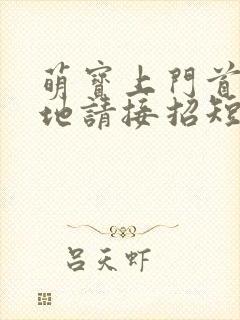 萌寶上門首
地請接招短
呂天虾